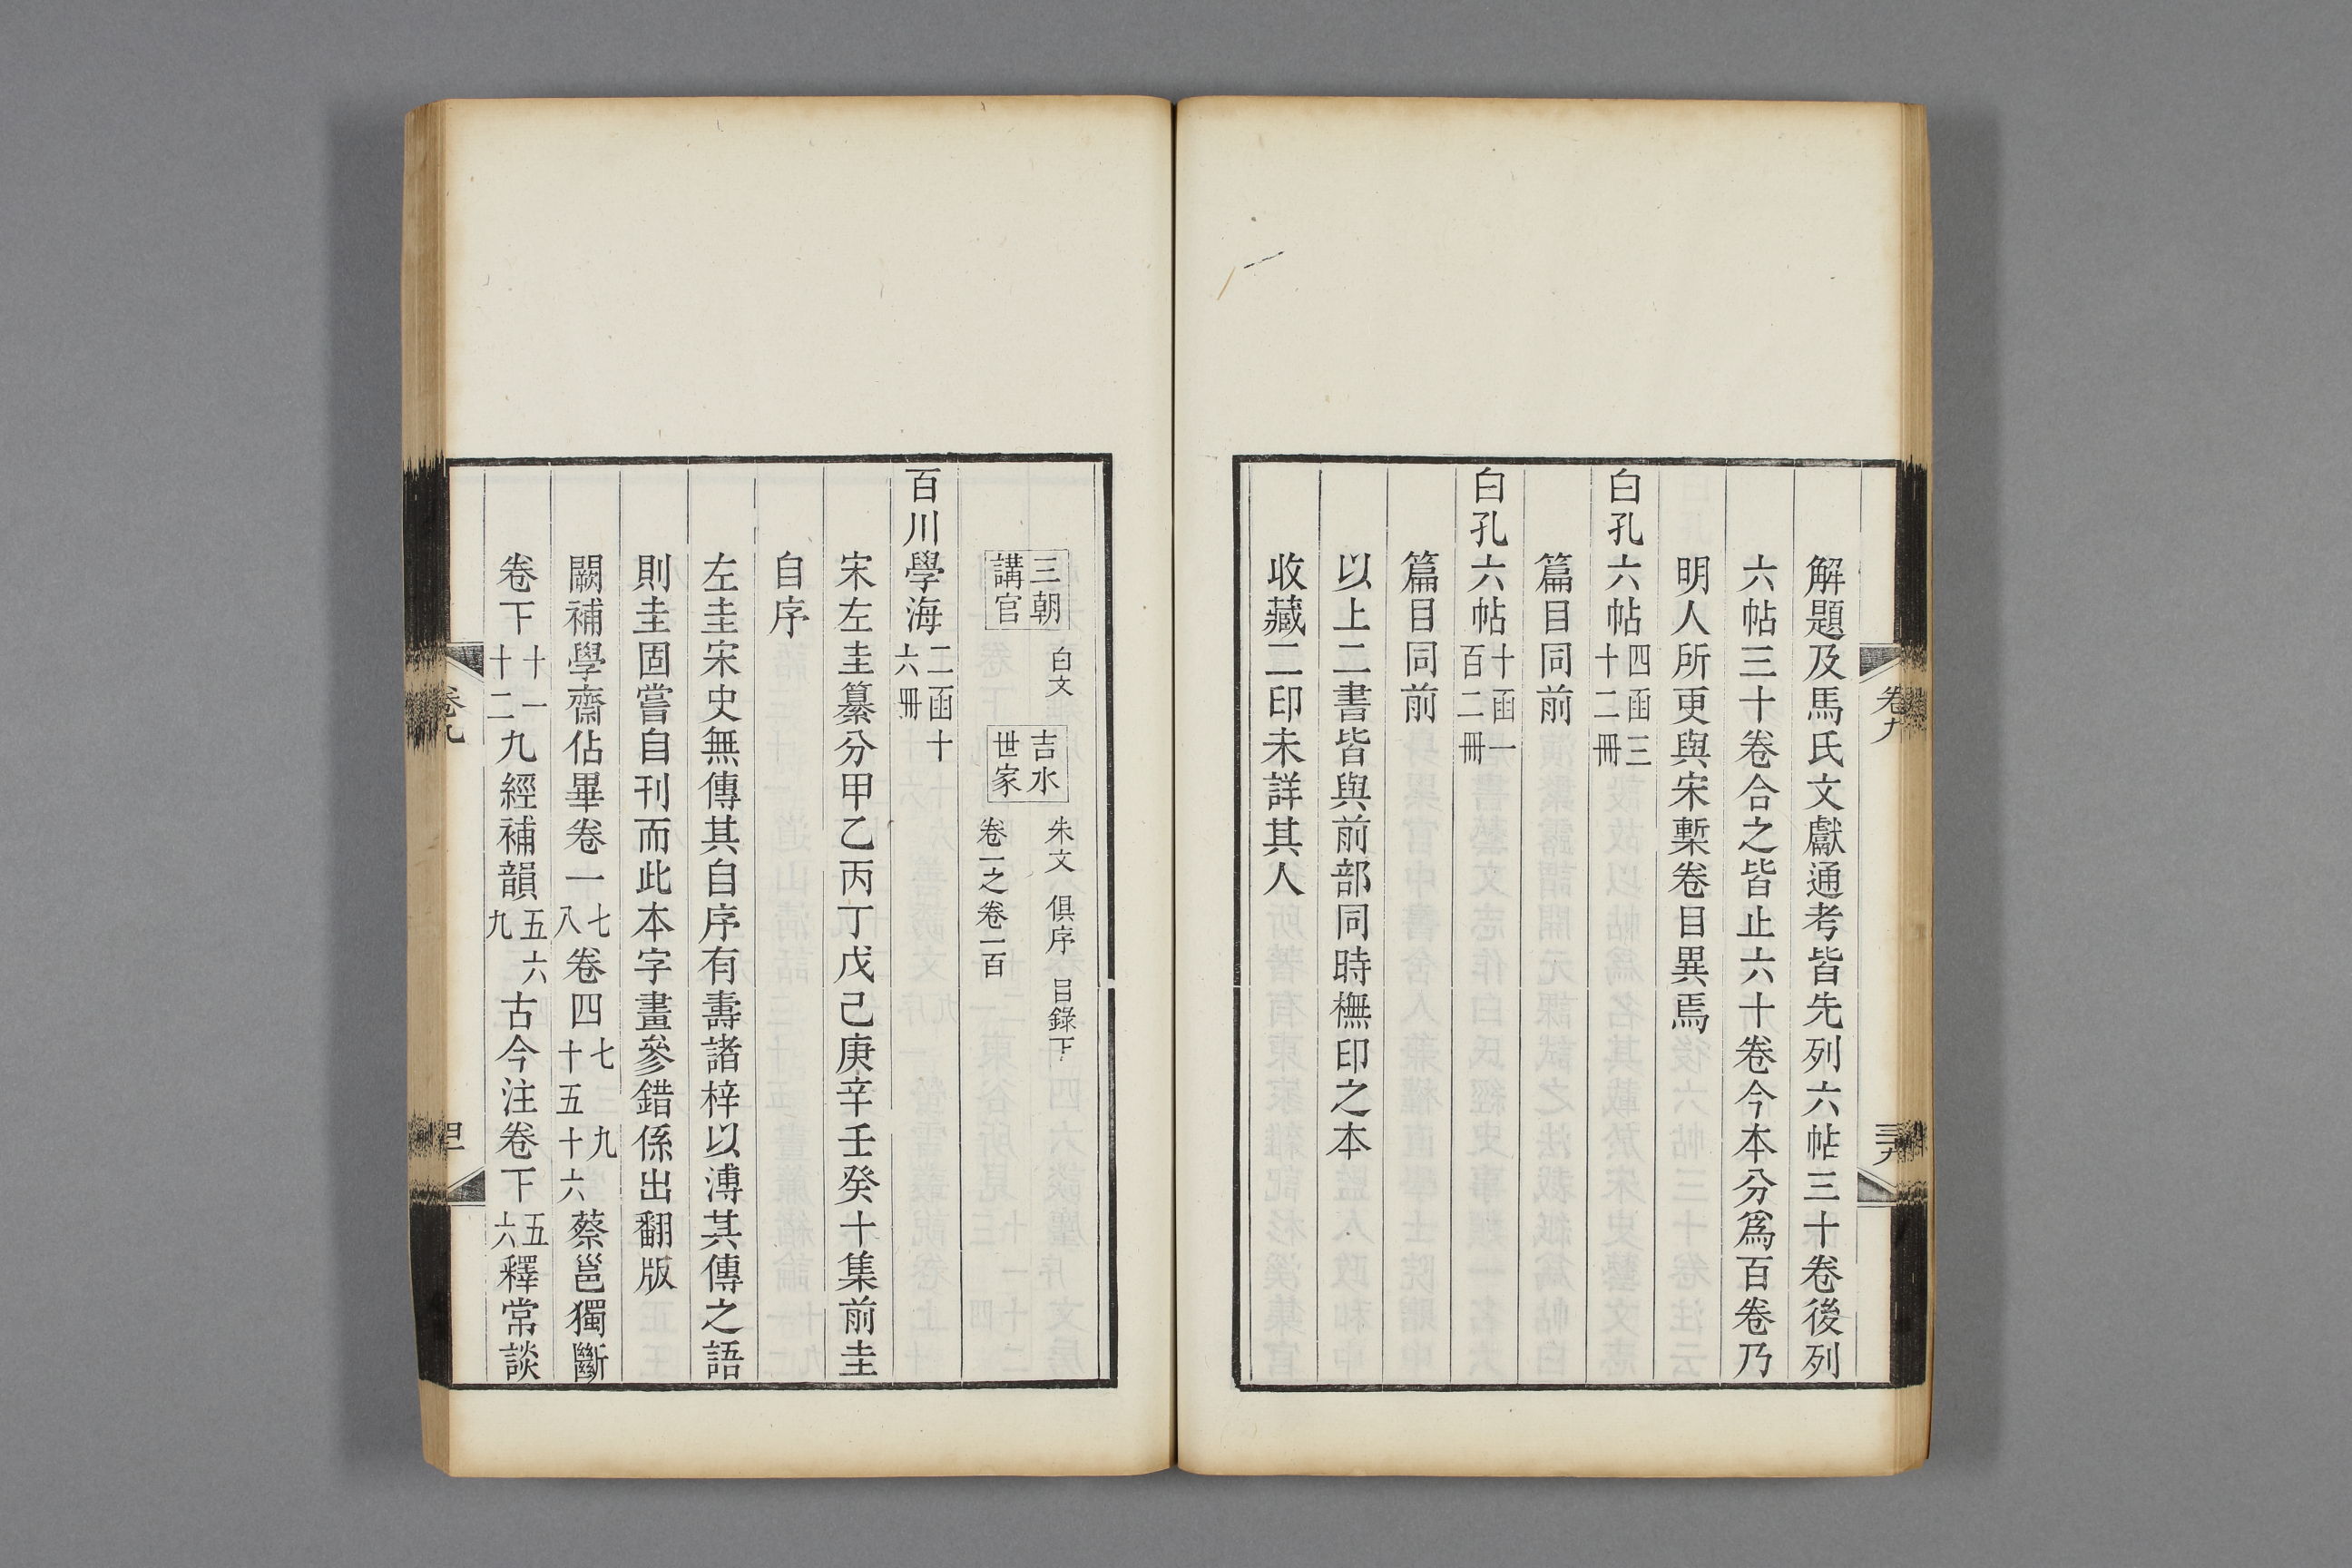 解題及馬氏文獻通考皆先列六帖三十卷後列
六帖三十卷合之皆止六十卷今本分爲百卷乃
明人所更與宋槧卷目異焉
白孔六帖四函三十二冊
篇目同前
白孔六帖十函一百二冊
篇目同前
以上二書皆與前部同時橅印之本
收藏二印未詳其人
卷九
三九
三朝講官 白文 吉水世家 朱文 俱序 目錄下
卷一之卷一百
百川學海二函十六冊
宋左圭纂分甲乙丙丁戊己庚辛壬癸十集前圭
自序
左圭宋史無傳其自序有壽諸梓以溥其傳之語
則圭固嘗自刊而此本字畫參錯係出翻版
闕補學齋佔畢卷一七八卷四七十五九十六蔡邕獨斷
卷下十一十二九經補韻五六九古今注卷下五六釋常談
卷九